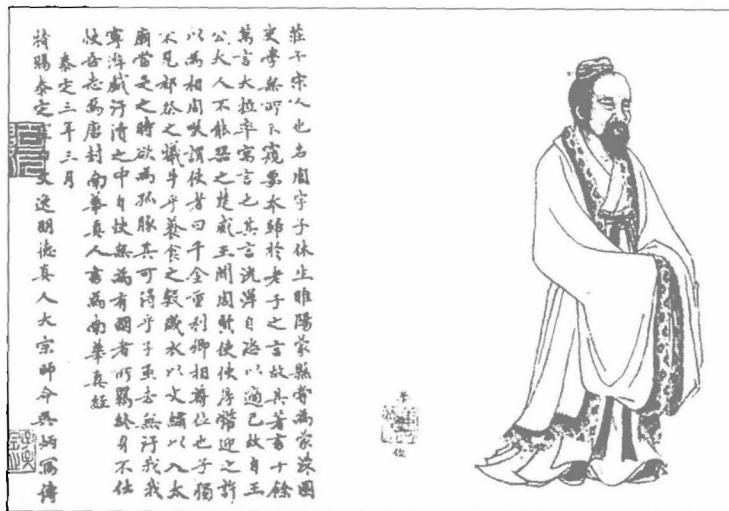 莊子宋人也名周字子休生睢陽蒙縣嘗為蒙漆園
吏學無所不窺要本歸於老子之言故其著書十餘
萬言大抵率寓言也其言洸洋自恣以適己故自王
公大人不能器之楚威王聞周賢使使厚幣迎之許
以為相周笑謂使者曰千金重利卿相尊位也子獨
不見郊祭之犧牛乎養食之數歲衣以文繡以入太
廟當是之時欲為孤豚其可得乎子亟去無汙我我
寧游戲汙瀆之中自快無為有國者所羈終身不仕
快吾志焉唐封南華真人書為南華真經
泰定三年三月
特賜泰定文逸明德真人大宗師命吳炳寫傳